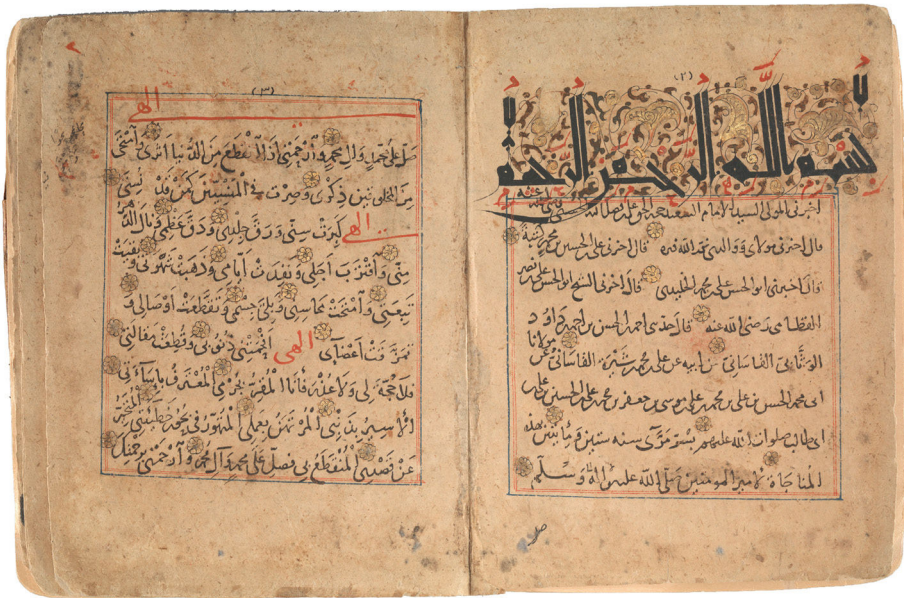 (٢)
بسم الله الرحمن الرحيم
اخبرني المولى السيد الامام السعيد
قال اخبرني مولاي ووالدي قال اخبرني على بن الحسين بن محمد
قال اخبرني ابو الحسن على بن محمد الخليسي قال اخبرني الشيخ ابو الحسن على بن نصر
القطامى رضى الله عنه قال حدثني احمد بن الحسن بن احمد بن داود
الوثابي القاساني عن ابيه عن على بن محمد بن شيرة القاساني عن مولانا
ابى محمد الحسن بن على بن محمد بن على بن موسى بن جعفر بن محمد بن على بن الحسين بن على بن
ابى طالب صلوات الله عليهم بسر من رأى سنه ستين ومائتين بهذه
المناجاة لامير المومنين صلى الله عليه واله وسلم
(٣)
الهي
صل على محمد وال محمد وارحمني اذا انقطع من الدنيا اثري وامتحى
من المخلوقين ذكري وصرت في المنسيين كمن قد نسي
الهي كبرت سني ورق جلدي ودق عظمي ونال الدهر
مني واقترب اجلي ونفدت ايامي وذهبت شهوتي وبقيت
تبعتي وامتحت محاسني وبلي جسمي وتقطعت اوصالي و
تفرقت اعضاى الهي افحمتني ذنوبي وقطعت مقالتي
فلا حجة لي ولا عذر فانا المقر بجرمي المعترف باساءتي
الاسير بذنبي المرتهن بعملي المتهور في بحور خطيئتي المتحير
عن قصدي المنقطع بي فصل على محمد وال محمد وارحمني برحمتك